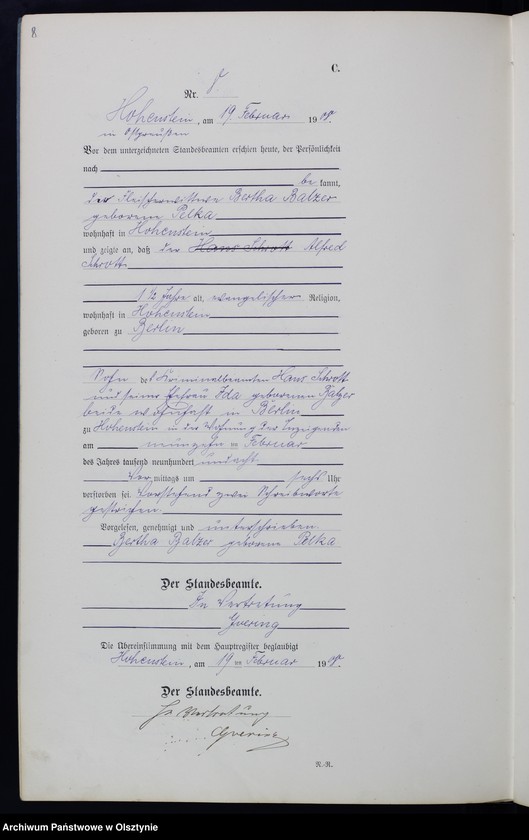 8
C.
Nr. 8
Hohenstein, am 19 Februar 1908.
in Ostpreußen
Vor dem unterzeichneten Standesbeamten erschien heute, der Persönlichkeit
nach
be kannt,
der Bertha Balzer
geborene Pelka
wohnhaft in Hohenstein
und zeigte an, daß der Hans Schrott Alfred
Schrott
1 1/2 Jahre alt, evangelischer Religion,
wohnhaft in Hohenstein
geboren zu Berlin
Sohn des Kriminalbeamten Hans Schrott
und seiner Ehefrau Ida geborenen Balzer
beide wohnhaft in Berlin
zu Hohenstein in der Wohnung der Anzeigenden
am neunzehn ten Februar
des Jahres tausend neunhundert und acht
Vor mittags um sechs Uhr
verstorben sei. Vorstehend zwei Schreibworte
gestrichen.
Vorgelesen, genehmigt und unterschrieben
Bertha Balzer geborene Pelka
Der Standesbeamte.
In Vertretung
Die Übereinstimmung mit dem Hauptregister beglaubigt
Hohenstein, am 19 ten Februar 1908.
Der Standesbeamte.
In Vertretung
N.-R.
Archiwum Państwowe w Olsztynie